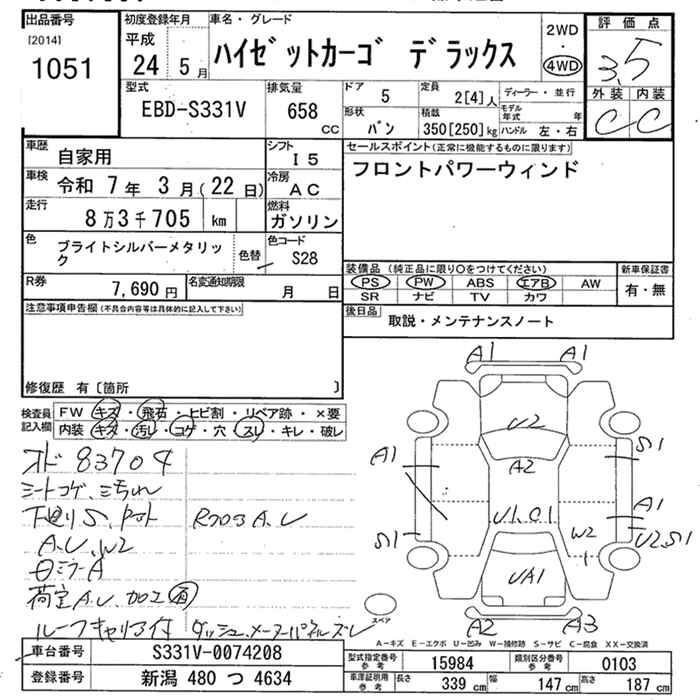 出品番号 初度登録年月 車名・グレード 評価点
[2014] 平成 2WD
1051 24 5月 ハイゼットカーゴ デラックス ・ 3.5
4WD
型式 排気量 ドア 5 定員 2[4]人 ディーラー・並行 外装 内装
EBD-S331V 658 CC 形状 バン 積載 350[250]kg モデル年式 年 C C
ハンドル 左・右
車歴 自家用 シフト I5 セールスポイント(正常に機能するものに限ります)
車検 令和 7年 3月(22日) 冷房 AC フロントパワーウィンド
走行 8万3千705 km 燃料 ガソリン
色 ブライトシルバーメタリック 色替 色コード S28
R券 7,690円 名変通知期限 月 日
装備品(純正品に限り○をつけてください) 新車保証書
PS PW ABS エアB AW 有・無
SR ナビ TV カワ
注意事項申告欄(不具合内容等は具体的に記入して下さい)
後日品 取説・メンテナンスノート
修復歴 有〔箇所 〕
検査員記入欄 FW キズ・飛石・ヒビ割・リペア跡・×要
内装 キズ・汚レ・コゲ・穴・スレ・キレ・破レ
オド 83704
シートコゲ、
A.U.W2
ミラーA
荷室A.U.加工
ルーフキャリア付 ダッシュ、メーターパネルズレ
A1 A1
U2
A2
A1 S1
A1
U1.C1
S1 W2 U2.S1
UA1
A2 A3
スペア
A-キズ E-エクボ U-凹み W-補修跡 S-サビ C-腐食 XX-交換済
車台番号 S331V-0074208 型式指定番号 参考 15984 類別区分番号 参考 0103
登録番号 新潟 480 つ 4634 車庫証明用 参考 長さ 339 cm 幅 147 cm 高さ 187 cm